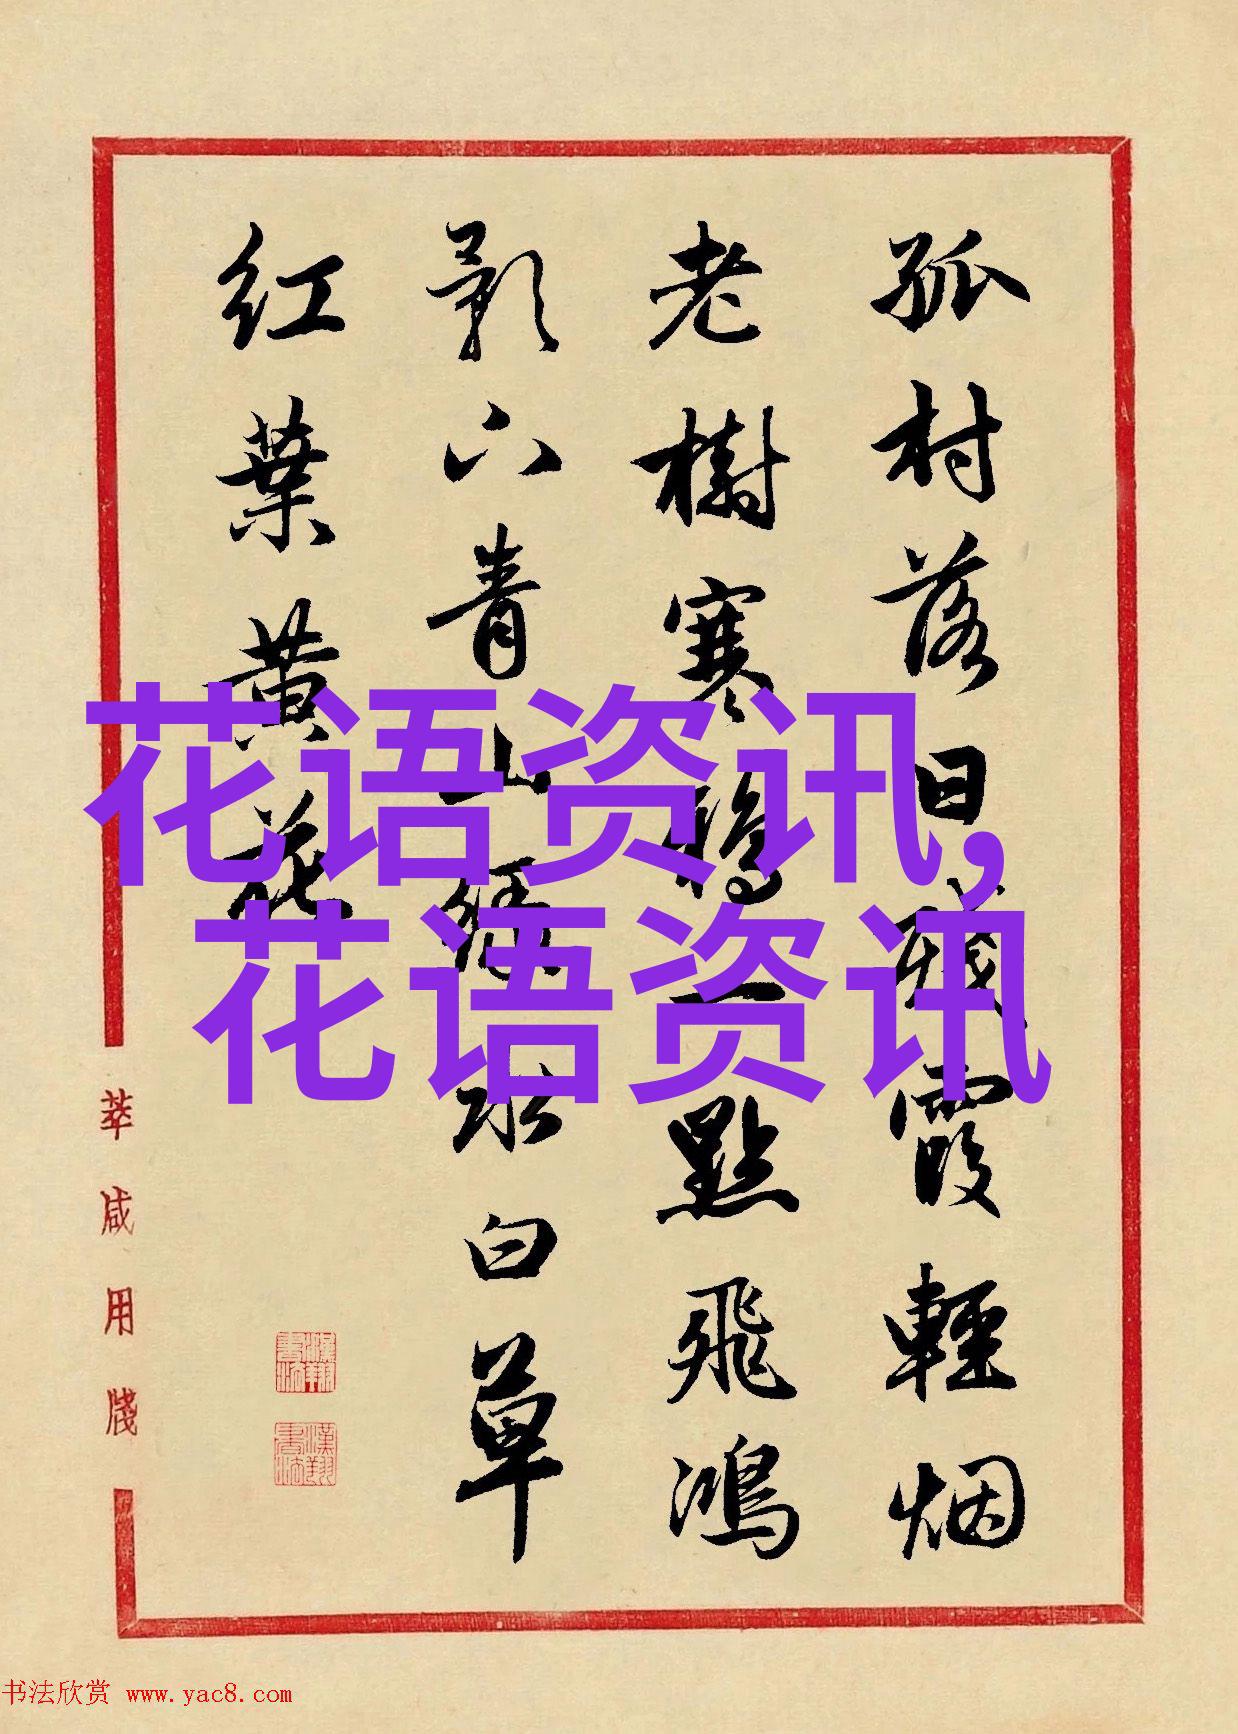 孤村落日残霞輕烟
老樹寒鴉一點飛鴻
影下青山绿水白草
红葉黄花
花语资讯,
花语资讯
萃咸用牋
書法欣赏 www.yac8.com